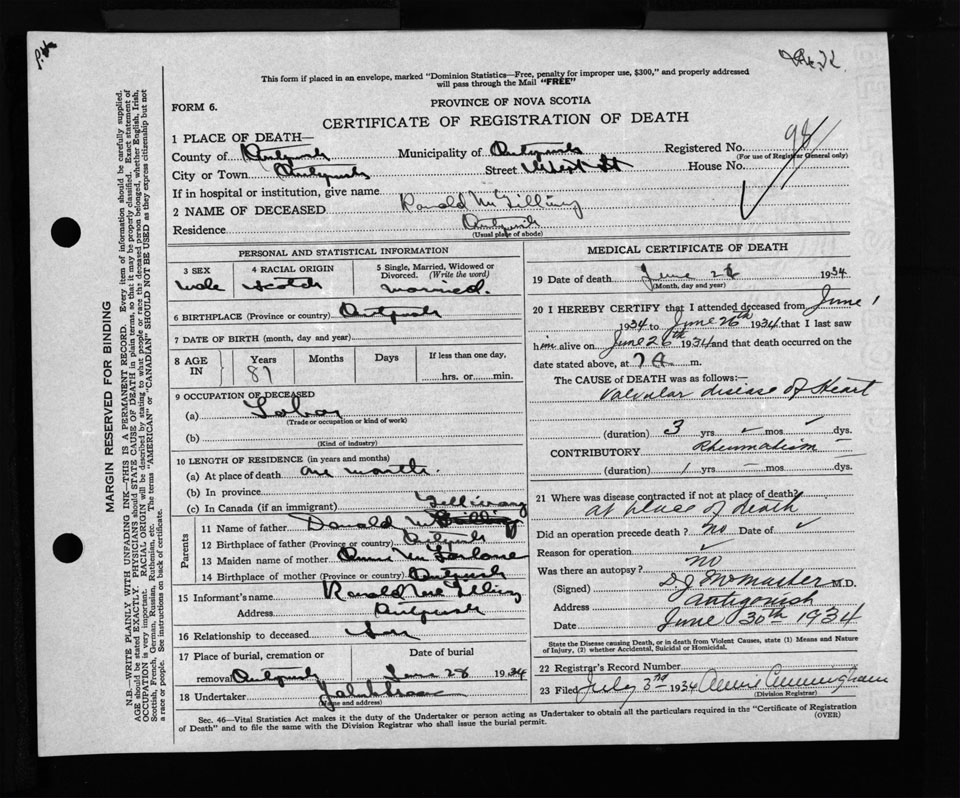 This form if placed in an envelope, marked "Dominion Statistics—Free, penalty for improper use, $300," and properly addressed
will pass through the Mail "FREE"
FORM 6.
PROVINCE OF NOVA SCOTIA
CERTIFICATE OF REGISTRATION OF DEATH
98
1 PLACE OF DEATH—
County of Antigonish Municipality of Antigonish Registered No.
(For use of Registrar General only)
City or Town Antigonish Street West St House No.
If in hospital or institution, give name
2 NAME OF DECEASED Ranald McGillivray
Residence Antigonish
(Usual place of abode)
PERSONAL AND STATISTICAL INFORMATION
3 SEX
male
4 RACIAL ORIGIN
Scotch
5 Single, Married, Widowed or
Divorced. (Write the word)
married.
6 BIRTHPLACE (Province or country) Antigonish
7 DATE OF BIRTH (month, day and year)
8 AGE IN
Years
Months
Days
If less than one day,
hrs. or min.
9 OCCUPATION OF DECEASED
(a) Labor
(Trade or occupation or kind of work)
(b)
(Kind of industry)
10 LENGTH OF RESIDENCE (in years and months)
(a) At place of death one month.
(b) In province
(c) In Canada (if an immigrant)
Parents
11 Name of father Donald Mc Gillivray
12 Birthplace of father (Province or country) Antigonish
13 Maiden name of mother McFarlane
14 Birthplace of mother (Province or country) Antigonish
15 Informant's name Ranald McGillivray
Address Antigonish
16 Relationship to deceased Son
17 Place of burial, cremation or Date of burial
removal Antigonish June 28 1934
18 Undertaker
(Name and address)
MEDICAL CERTIFICATE OF DEATH
19 Date of death June 1934
(Month, day and year)
20 I HEREBY CERTIFY that I attended deceased from June 1
1934 to June 26th 1934 that I last saw
him alive on June 26th 1934 and that death occurred on the
date stated above, at 7 A m.
The CAUSE OF DEATH was as follows:—
Valvular disease of Heart
(duration) 3 yrs mos dys.
CONTRIBUTORY Rheumatism
(duration) 1 yrs mos dys.
21 Where was disease contracted if not at place of death?
at place of death
Did an operation precede death? no Date of
Reason for operation
Was there an autopsy? no
(Signed) D J McMaster M.D.
Address Antigonish
Date June 30th 1934
State the Disease causing Death, or in death from Violent Causes, state (1) Means and Nature
of Injury, (2) whether Accidental, Suicidal or Homicidal.
22 Registrar's Record Number
23 Filed July 3rd 1934 Cunningham
(Division Registrar)
Sec. 46—Vital Statistics Act makes it the duty of the Undertaker or person acting as Undertaker to obtain all the particulars required in the "Certificate of Registration
of Death" and to file the same with the Division Registrar who shall issue the burial permit. (OVER)
MARGIN RESERVED FOR BINDING
N.B.—WRITE PLAINLY WITH UNFADING INK—THIS IS A PERMANENT RECORD. Every item of information should be carefully supplied.
AGE should be stated EXACTLY. PHYSICIANS should STATE CAUSE OF DEATH in plain terms, so that it may be properly classified. Exact statement of
OCCUPATION is very important. RACIAL ORIGIN will be described by stating to what people or race the deceased person belonged, whether English, Irish,
Scottish, French, German, Russian, Ruthenian, etc. The terms "AMERICAN" or "CANADIAN" SHOULD NOT BE USED as they express citizenship but not
a race or people. See instructions on back of certificate.